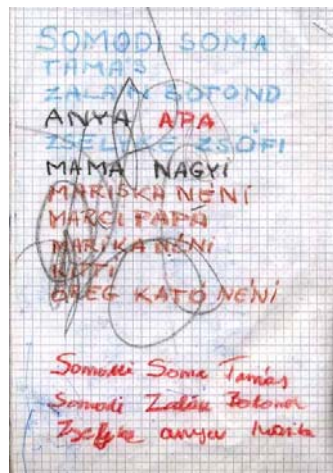 SOMODI SOMA
TAMÁS
ZALÁN BOTOND
ANYA APA
ZSELYKE ZSÓFI
MAMA NAGYI
MARISKA NÉNI
MARCI PAPA
MARIKA NÉNI
ÖREG KATÓ NÉNI
Somodi Soma Tamás
Somodi Zalán Botond
Zselyke anyu